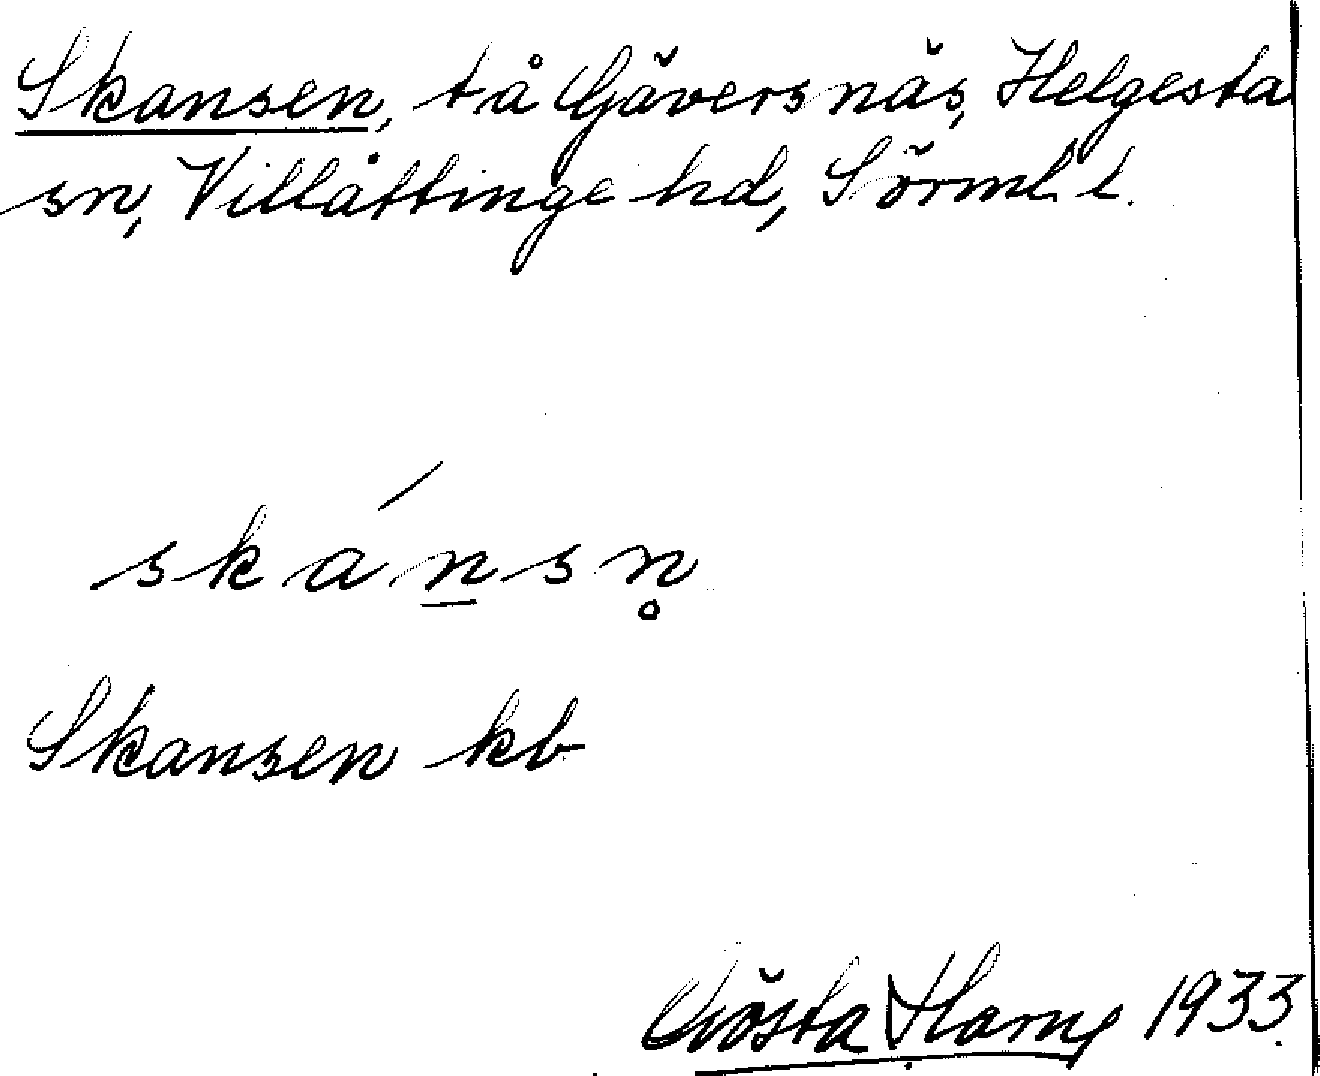 Skansen, tå Gäversnäs, Helgesta
sn, Villåttinge hd, Sörml. l.
skánsn̥
Skansen kb
Gösta Harne 1933.